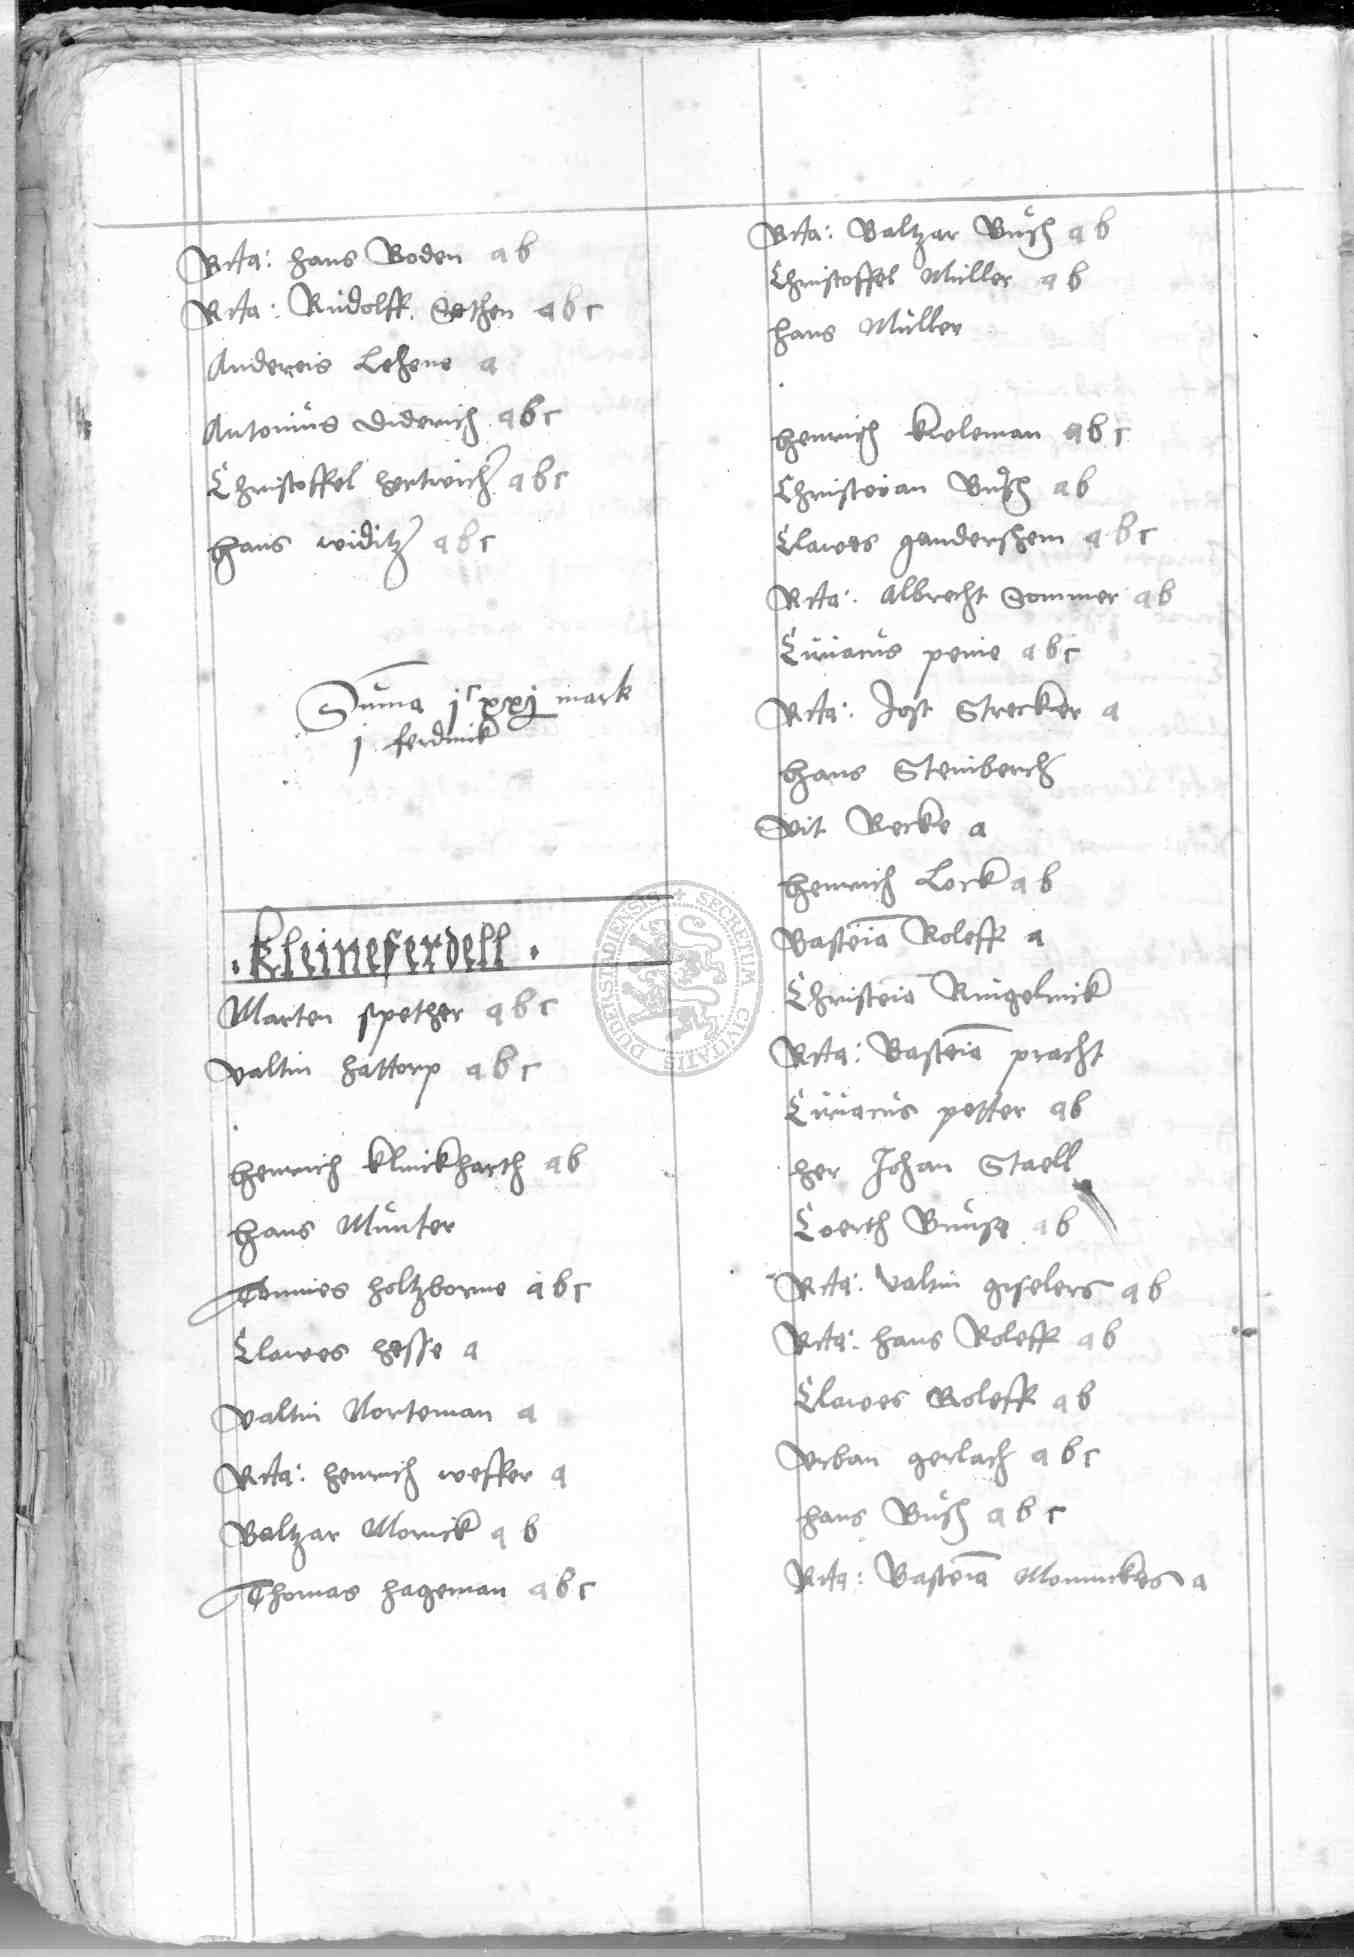 Rcta: hans Boden a b
Rcta: Rudolff Sothen a b c
Andereis Lehene a
Antonius Diderich a b c
Christoffel hertwich a b c
hans widitz a b c
Suma jc xxj mark
j ferdink
. kleineferdell .
Marten spether a b c
valtin hattorp a b c
henrich klinckharth a b
hans Munter
Tonnies holtzborne a b c
Clawes hesse a
valtin Norteman a
Rcta: henrich wesker a
Baltzar Mornick a b
Thomas hageman a b c
Rcta: Baltzar Busch a b
Christoffel Müller a b
hans Müller
henrich koleman a b c
Christoian Busch a b
Clawes gandershem a b c
Rcta: Albrecht Sommer a b
Ciriacus peine a b c
Rcta: Jost Strecker a
hans Steinberch
Vit Recke a
henrich Lock a b
Basteia Roleff a
Christeia Ringelrick
Rcta: Basteia pracht
Ciriacus petter a b
her Johan Staell
Coerth Bruse a b
Rcta: valtin giselers a b
Rcta: hans Roleff a b
Clawes Roleff a b
Vrban gerlach a b c
hans Busch a b c
Rcta: Basteia Monnickes a
DUDERSTADIENSIS SECRETUM CIVITATIS